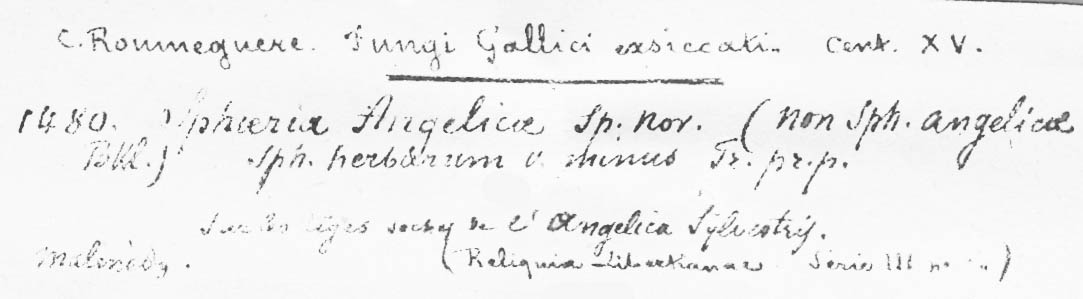 C. Roumeguere. Fungi Gallici exsiccati. Cent. XV.
1480. Sphæria Angelicæ Sp. nov. (non Sph. angelicæ
Bkl.) Sph. herbarum v. minus Fr. pr. p.
Sur les tiges seches de l'Angelica Sylvestris.
Malmédy. (Reliquiæ Libertianae Série III